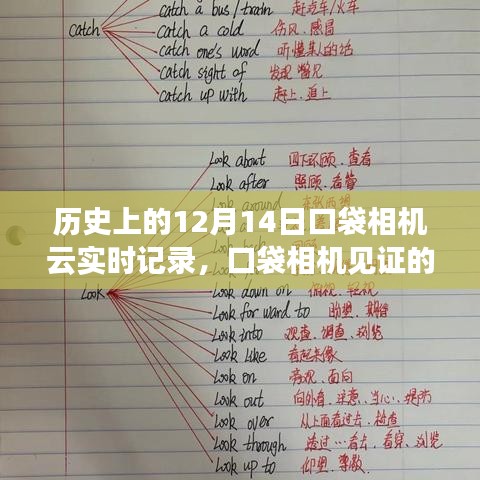 catch a bus / train 赶汽车/火车
Catch
catch a cold 伤风、感冒
catch one's word 听懂某人的话
catch sight of 发现 瞥见
catch up with 赶上、追上
Look about 四下环顾、查看
Look after 照顾、看管
Look around
历史上的12月14日口袋相机
云实时记录，口袋相机见证的
Look
Look down on 俯视、轻视
Look forward to 盼望、期待
Look into 观查、调查、浏览
Look like 看起来像
Look on 旁观、面向
Look out 向外看、注意、当心、提防
Look over 从上面看过去、检查
Look through 透过…看去、看穿、浏览
Look up to 仰望、尊敬